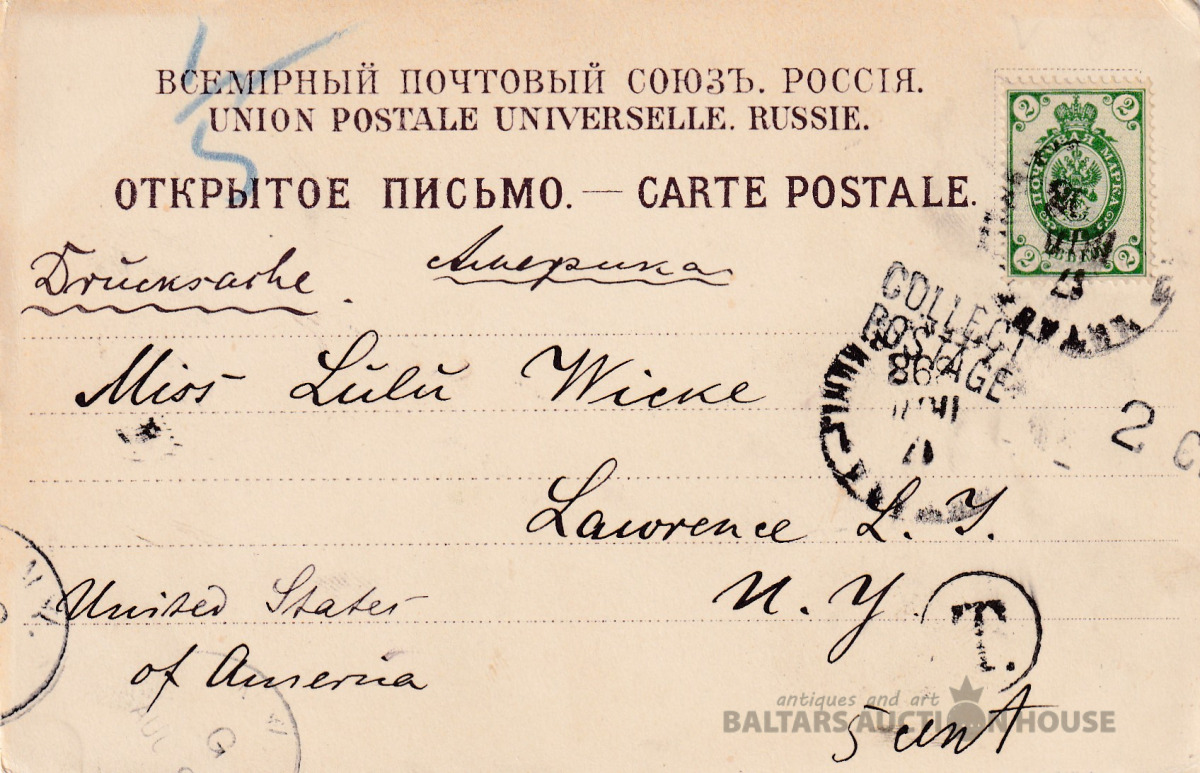 ВСЕМІРНЫЙ ПОЧТОВЫЙ СОЮЗЪ. РОССІЯ.
UNION POSTALE UNIVERSELLE. RUSSIE.
ОТКРЫТОЕ ПИСЬМО. — CARTE POSTALE.
2 2
ПОЧТОВАЯ МАРКА
2 2
Drucksache. Америка
COLLECT
POSTAGE
Miss Lulu Wicke
2 C
Lawrence L. I.
N. Y.
T.
United States
of America
5 cent
antiques and art
BALTARS AUCTION HOUSE